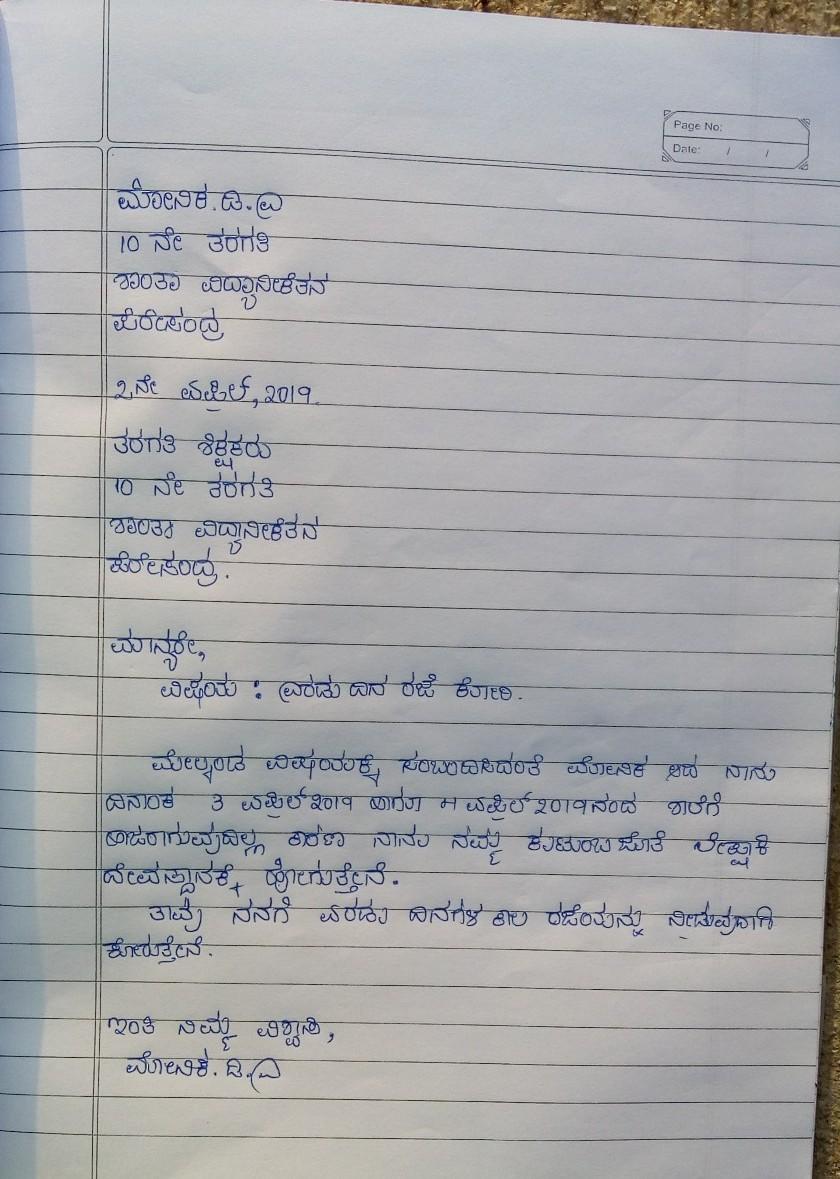 Page No:
Date: / /
ಮೋನಿಕ. ಡಿ. ವಿ
10 ನೇ ತರಗತಿ
ಶಾಂತಾ ವಿದ್ಯಾನಿಕೇತನ
ಪೆರೇಸಂದ್ರ
2 ನೇ ಏಪ್ರಿಲ್, 2019.
ತರಗತಿ ಶಿಕ್ಷಕರು
10 ನೇ ತರಗತಿ
ಶಾಂತಾ ವಿದ್ಯಾನಿಕೇತನ
ಪೆರೇಸಂದ್ರ.
ಮಾನ್ಯರೇ,
ವಿಷಯ : ಎರಡು ದಿನ ರಜೆ ಕೋರಿ.
ಮೇಲ್ಕಂಡ ವಿಷಯಕ್ಕೆ ಸಂಬಂದಿಸಿದಂತೆ ಮೋನಿಕ ಆದ ನಾನು
ದಿನಾಂಕ 3 ಏಪ್ರಿಲ್ 2019 ಹಾಗೂ 4 ಏಪ್ರಿಲ್ 2019 ನಂದ ಶಾಲೆಗೆ
ಹಾಜರಾಗುವುದಿಲ್ಲ ಕಾರಣ ನಾನು ನಮ್ಮ ಕುಟುಂಬ ಜೊತೆ
ದೇವಸ್ಥಾನಕ್ಕೆ ಹೋಗುತ್ತೇನೆ.
ತಾವು ನನಗೆ ಎರಡು ದಿನಗಳ ಕಾಲ ರಜೆಯನ್ನು ನೀಡುವುದಾಗಿ
ಕೋರುತ್ತೇನೆ.
ಇಂತಿ ನಿಮ್ಮ ವಿಶ್ವಾಸಿ,
ಮೋನಿಕ. ಡಿ. ವಿ